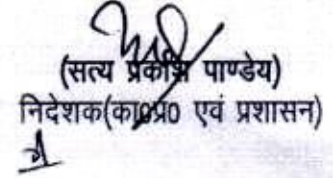 (सत्य प्रकाश पाण्डेय)
निदेशक(का0प्र0 एवं प्रशासन)